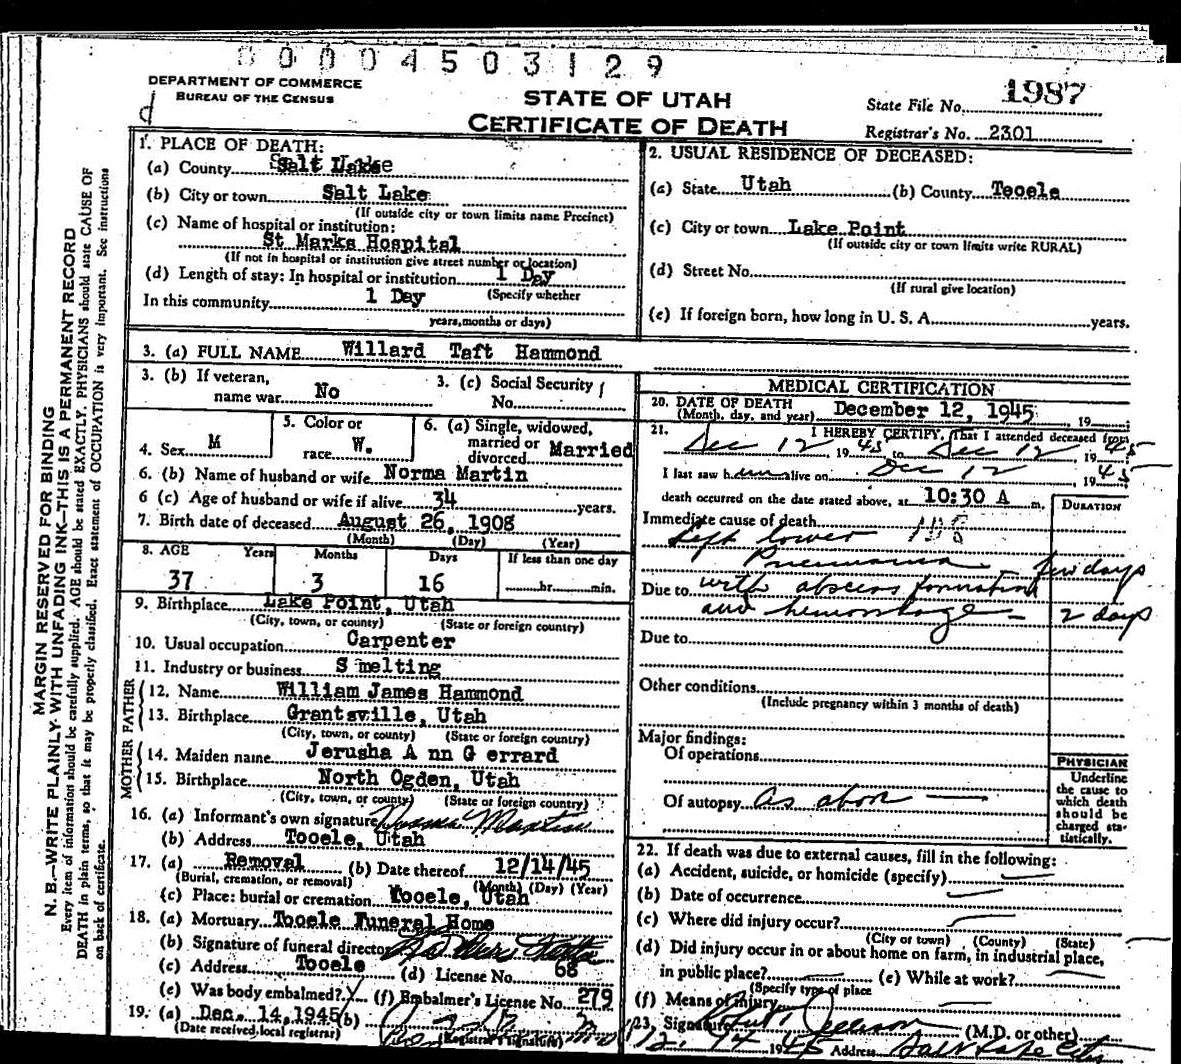 00004503129
DEPARTMENT OF COMMERCE
BUREAU OF THE CENSUS
d
STATE OF UTAH
CERTIFICATE OF DEATH
State File No. 1987
Registrar's No. 2301
MARGIN RESERVED FOR BINDING
N. B.—WRITE PLAINLY WITH UNFADING INK—THIS IS A PERMANENT RECORD
Every item of information should be carefully supplied. AGE should be stated EXACTLY. PHYSICIANS should state CAUSE OF
DEATH in plain terms, so that it may be properly classified. Exact statement of OCCUPATION is very important. See instructions
on back of certificate.
1. PLACE OF DEATH:
(a) County Salt Lake
(b) City or town Salt Lake
(If outside city or town limits name Precinct)
(c) Name of hospital or institution:
St Marks Hospital
(If not in hospital or institution give street number or location)
(d) Length of stay: In hospital or institution 1 Day
(Specify whether
In this community 1 Day
years, months or days)
2. USUAL RESIDENCE OF DECEASED:
(a) State Utah (b) County Tooele
(c) City or town Lake Point
(If outside city or town limits write RURAL)
(d) Street No.
(If rural give location)
(e) If foreign born, how long in U. S. A. years.
3. (a) FULL NAME Willard Taft Hammond
3. (b) If veteran,
name war No
3. (c) Social Security
No.
4. Sex M
5. Color or
race W.
6. (a) Single, widowed,
married or
divorced Married
6. (b) Name of husband or wife Norma Martin
6 (c) Age of husband or wife if alive 34 years.
7. Birth date of deceased August 26, 1908
(Month) (Day) (Year)
8. AGE Years Months Days If less than one day
37 3 16 hr. min.
9. Birthplace Lake Point, Utah
(City, town, or county) (State or foreign country)
10. Usual occupation Carpenter
11. Industry or business S melting
FATHER
12. Name William James Hammond
13. Birthplace Grantsville, Utah
(City, town, or county) (State or foreign country)
MOTHER
14. Maiden name Jerusha A nn G errard
15. Birthplace North Ogden, Utah
(City, town, or county) (State or foreign country)
16. (a) Informant's own signature Norma Martin
(b) Address Tooele, Utah
17. (a) Removal (b) Date thereof 12/14/45
(Burial, cremation, or removal) (Month) (Day) (Year)
(c) Place: burial or cremation Tooele, Utah
18. (a) Mortuary Tooele Funeral Home
(b) Signature of funeral director
(c) Address Tooele (d) License No. 68
(e) Was body embalmed? Y (f) Embalmer's License No. 279
19. (a) Dec. 14, 1945 (b)
(Date received local registrar) (Registrar's signature)
MEDICAL CERTIFICATION
20. DATE OF DEATH
(Month, day, and year) December 12, 1945 19
21. I HEREBY CERTIFY, That I attended deceased from
Dec 12, 1945 to Dec 12 1945
I last saw him alive on Dec 12 1945
death occurred on the date stated above, at 10:30 A m.
DURATION
Immediate cause of death 108
Left lower
Pneumonia few days
Due to with abscess formation
and hemorrhage — 2 days
Due to
Other conditions
(Include pregnancy within 3 months of death)
Major findings:
Of operations
Of autopsy As above —
PHYSICIAN
Underline
the cause to
which death
should be
charged sta-
tistically.
22. If death was due to external causes, fill in the following:
(a) Accident, suicide, or homicide (specify)
(b) Date of occurrence
(c) Where did injury occur?
(City or town) (County) (State)
(d) Did injury occur in or about home on farm, in industrial place,
in public place? (e) While at work?
(Specify type of place
(f) Means of injury
23. Signature (M.D. or other)
12. 14 1945 Address Salt Lake City